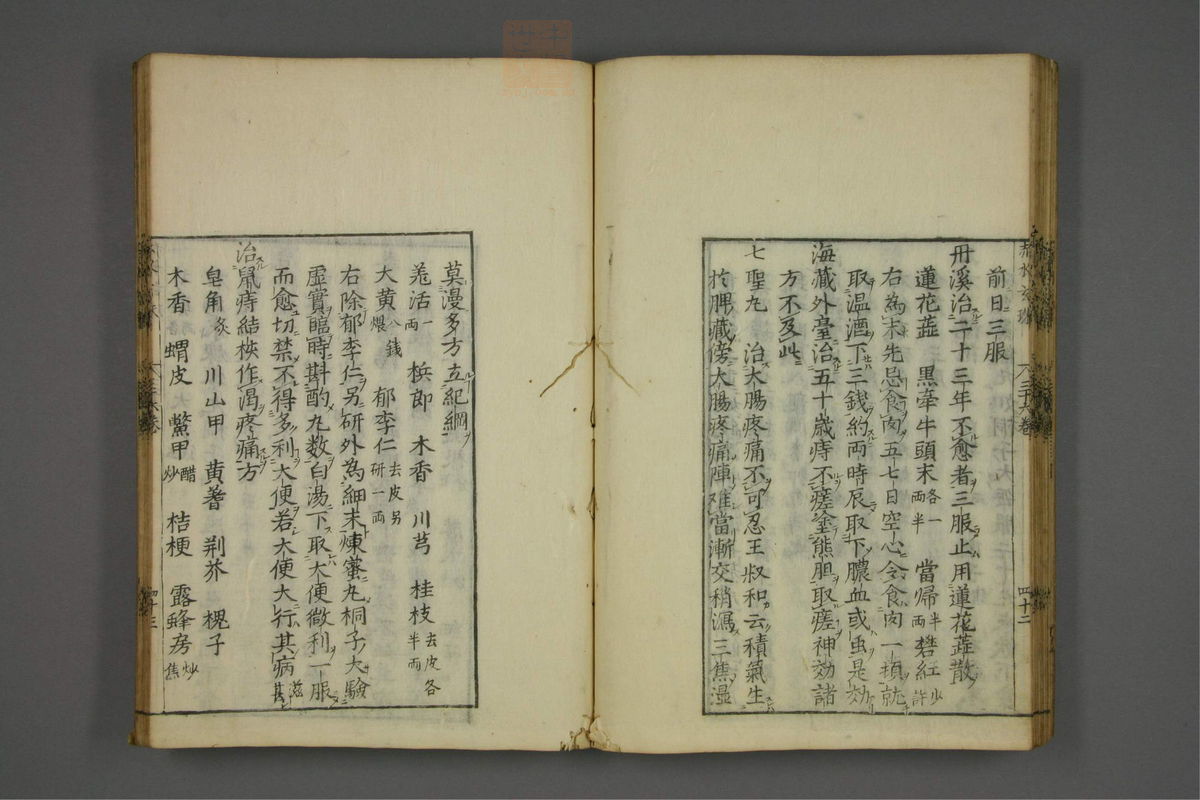 前日三服
丹溪治二十三年不愈者三服止用蓮花蕋散
蓮花蕋 黒牽牛頭末各一兩半 當歸半兩 礬紅少許
右為末先忌食肉五七日空心令食肉一頓就
取温酒下三錢約兩時辰取下膿血或虫是効
海藏外臺治五十歳痔不瘥塗熊胆取瘥神効諸
方不及此
七聖丸 治大腸疼痛不可忍王叔和云積氣生
於脾藏傍大腸疼痛陣难當漸交稍瀉三焦湿
莫漫多方立紀綱
羗活一兩 梹郎 木香 川芎 桂枝去皮各半兩
大黄八錢煨 郁李仁去皮另研一兩
右除郁李仁另研外為細末煉蜜丸桐子大驗
虚實臨時斟酌丸數白湯下取大便微利一服
而愈切禁不得多利大便若大便大行其病滋甚
治鼠痔結核作渇疼痛方
皂角炙 川山甲 黄蓍 荆芥 槐子
木香 蝟皮 鱉甲醋炒 桔梗 露蜂房炒焦
四十三